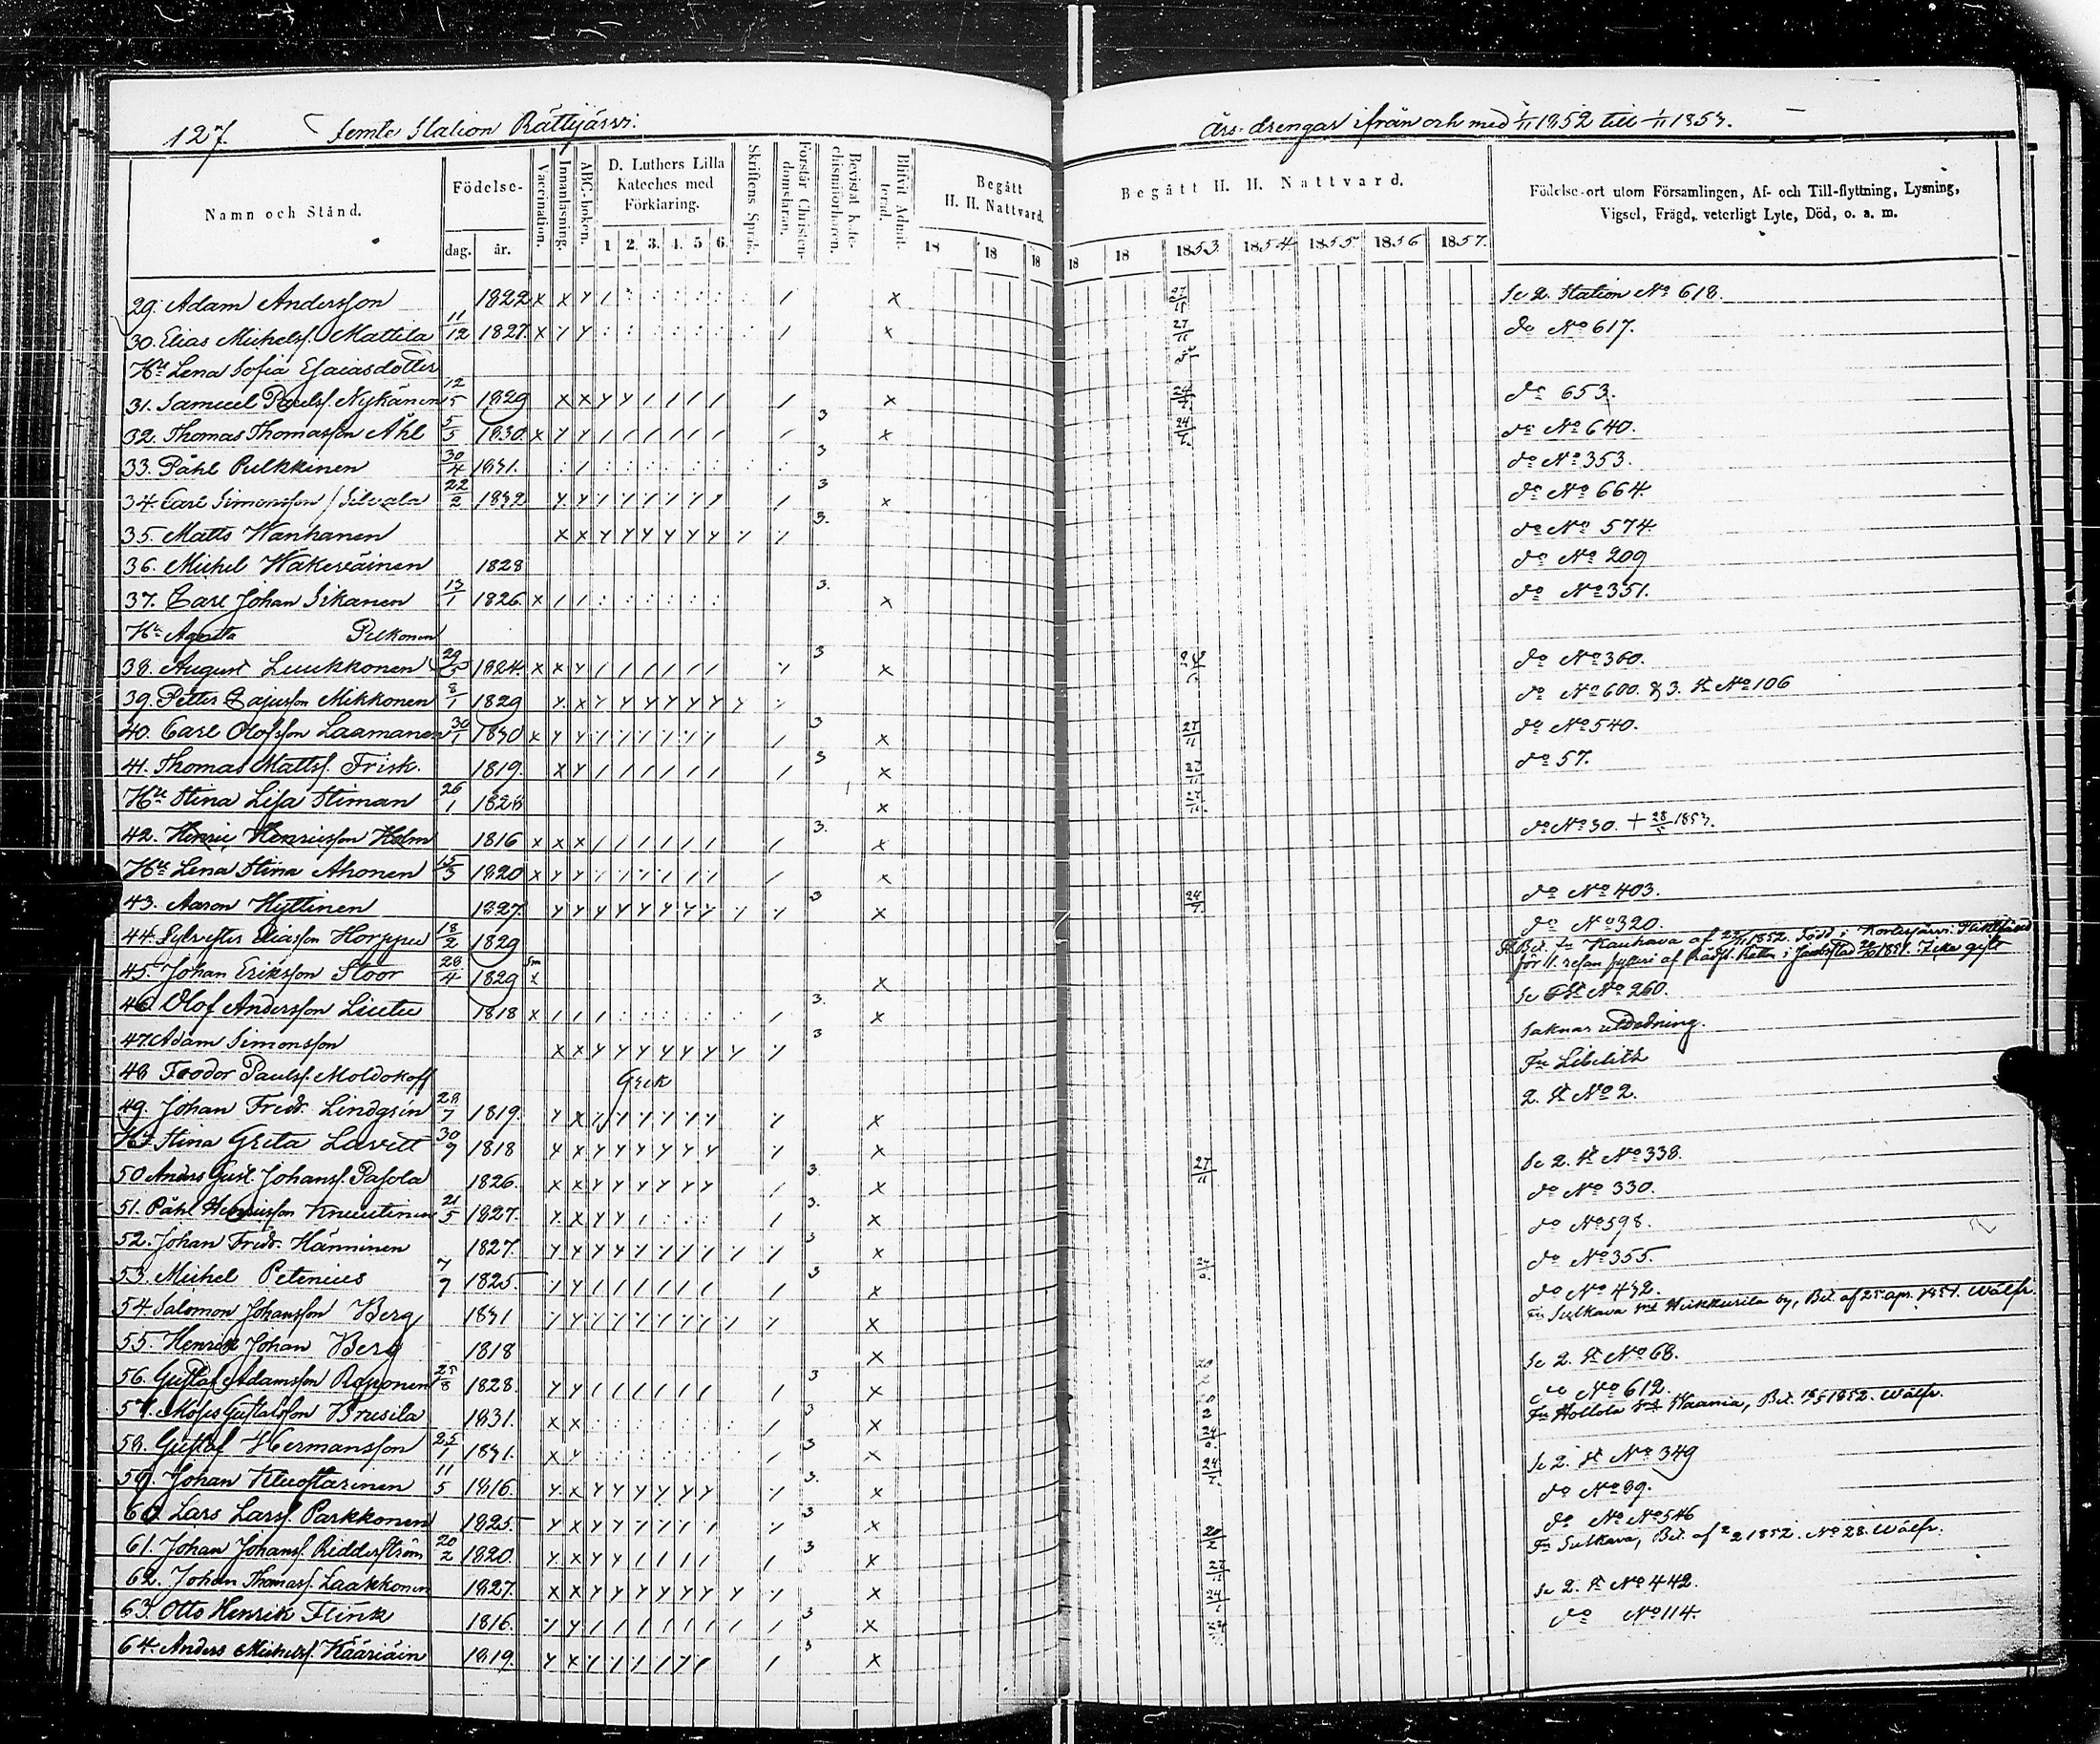 127. Femte Station Rättijärvi.
Års-drengar ifrån och med 1/11 1852 till 1/11 1853.
Namn och Stånd.
Födelse-
dag. år.
Vaccination.
Innanläsning.
ABC-boken.
D. Luthers Lilla
Kateches med
Förklaring.
1 2. 3. 4. 5 6.
Skriftens Språk.
Förstår Christen-
domsläran.
Bevistat Kate-
chismiförhören.
Blifvit Admit-
terad.
Begått
H. H. Nattvard.
18 18 18
Begått H. H. Nattvard.
18 18 1853. 1854. 1855 1856 1857.
Födelse-ort utom Församlingen, Af- och Till-flyttning, Lysning,
Vigsel, Frägd, veterligt Lyte, Död, o. a. m.
29. Adam Andersson 1822 Se 2. Station No 618.
30. Elias Michelss. Mattila 11/12 1827. 27/11 do No 617.
Hu Lena Sofia Esaiasdotter
31. Samuel Paulss. Nykänen 12/5 1829 do 653.
32. Thomas Thomasson Åhl 5/5 1830. 3 do No 640.
33. Påhl Pulkkinen 30/4 1831. 3 do No 353.
34. Carl Simonsson / Silvala 22/2 1832 3 do No 664.
35. Matts Wanhanen 3. do No 574.
36. Michel Wäkeväinen 1828 do No 209
37. Carl Johan Sikanen 13/1 1826. 3. do No 351.
Hu Agneta Pelkonen
38. August Luukkonen 29/5 1824. 3 do No 360.
39. Petter Cajusson Mikkonen 8/1 1829 do No 600. & 3. St No 106
40. Carl Olofsson Laamanen 30/1 1830 3 27/11 do No 540.
41. Thomas Mattss. Frisk. 1819. 3 27/11 do 57.
Hu Stina Lisa Stiman 26/1 1828
42. Henric Henricsson Holm 1816 3. do No 30. + 28/5 1853.
Hu Lena Stina Ahonen 15/3 1820
43. Aaron Hyttinen 1827. 3 24/7. do No 403.
44. Sylvester Eliasson Horppu 18/2 1829 do No 320.
45. Johan Eriksson Stoor 28/4 1829 Bet. fr Kauhava af 22/11 1852. Född i Kortesjärvi.
för 11. resan fylleri af Rådst. Rätten i Jacobstad 20/10 1851. Icke gift
46. Olof Andersson Liutu 1818 3. Se 6 St No 260.
47. Adam Simonsson 3 Saknar utredning.
48 Feodor Paulss. Moldokoff Grek Fr Libelits
49. Johan Fredr. Lindgrén 28/7 1819. 2. St No 2.
Hu Stina Greta Lavett 30/9 1818
50 Anders Gust. Johanss. Pasola 1826. 3. 27/11 Se 2. St No 338.
51. Påhl Henricsson Knuutinen 21/5 1827. 3. do No 330.
52. Johan Fredr. Hänninen 1827. 3 do No 598.
53. Michel Petenius 7/9 1825 3 do No 355.
54. Salomon Johansson Berg 1831 do No 432.
55. Henrik Johan Berg 1818 Fr Sulkava sn Heikkurila by, Bet. af 25 apr. 1851. Wälfr.
56. Gustaf Adamsson Roponen 25/8 1828. 3 Se 2. St No 68.
57. Moses Gustafsson Brusila 1831. 3 do No 612.
58. Gustaf Hermansson 25/1 1831. 3 Fr Hollola sn Waania, Bet. 1852. Wälfr.
59. Johan Kluostarinen 11/5 1816. 3. 24/7. Se 2. St No 349
60. Lars Larss. Parkkonen 1825. 3 do No 39.
61. Johan Johanss. Ridderström 20/2 1820. 3 20/2 do No No 546
62. Johan Thomass. Laakkonen 1827. 27/11 Fr Sulkava, Bet. af 2/2 1852. No 28. Wälfr.
63. Otto Henrik Flink 1816. 3 Se 2. St No 442.
64. Anders Michelss. Kääriäin 1819. 3 do No 114.